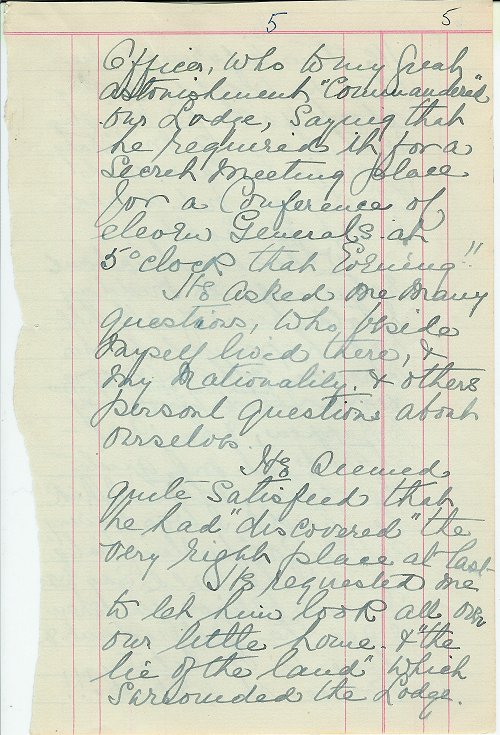 5 5
Officer, who to my great
astonishment, "Commandered"
our Lodge, saying that
he required it for a
Secret Meeting place
for a Conference of
eleven Generals at
5 o'clock that Evening"!!
He asked me many
questions, who beside
myself lived there, &
my Nationality. & others
personl questions about
ourselves.
He seemed
quite satisfied that
he had "discovered" the
very right place at last-
He requested me
to let him look all over
our little home. & "the
lie of the land" which
surrounded the Lodge.